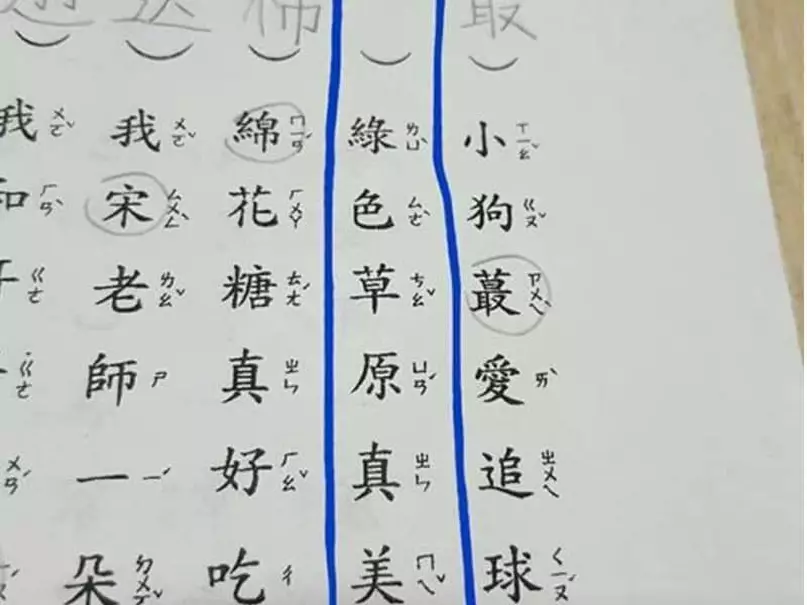 最
（）小ㄒㄧㄠˇ狗ㄍㄡˇ蕞ㄗㄨㄟˋ愛ㄞˋ追ㄓㄨㄟ球ㄑㄧㄡˊ
（）綠ㄌㄩˋ色ㄙㄜˋ草ㄘㄠˇ原ㄩㄢˊ真ㄓㄣ美ㄇㄟˇ
（）綿ㄇㄧㄢˊ花ㄏㄨㄚ糖ㄊㄤˊ真ㄓㄣ好ㄏㄠˇ吃ㄔ
（）我ㄨㄛˇ宋ㄙㄨㄥˋ老ㄌㄠˇ師ㄕ一ㄧˊ朵ㄉㄨㄛˇ
我ㄨㄛˇ和ㄏㄢˋㄍㄜ˙ㄍㄜㄨㄢˊ